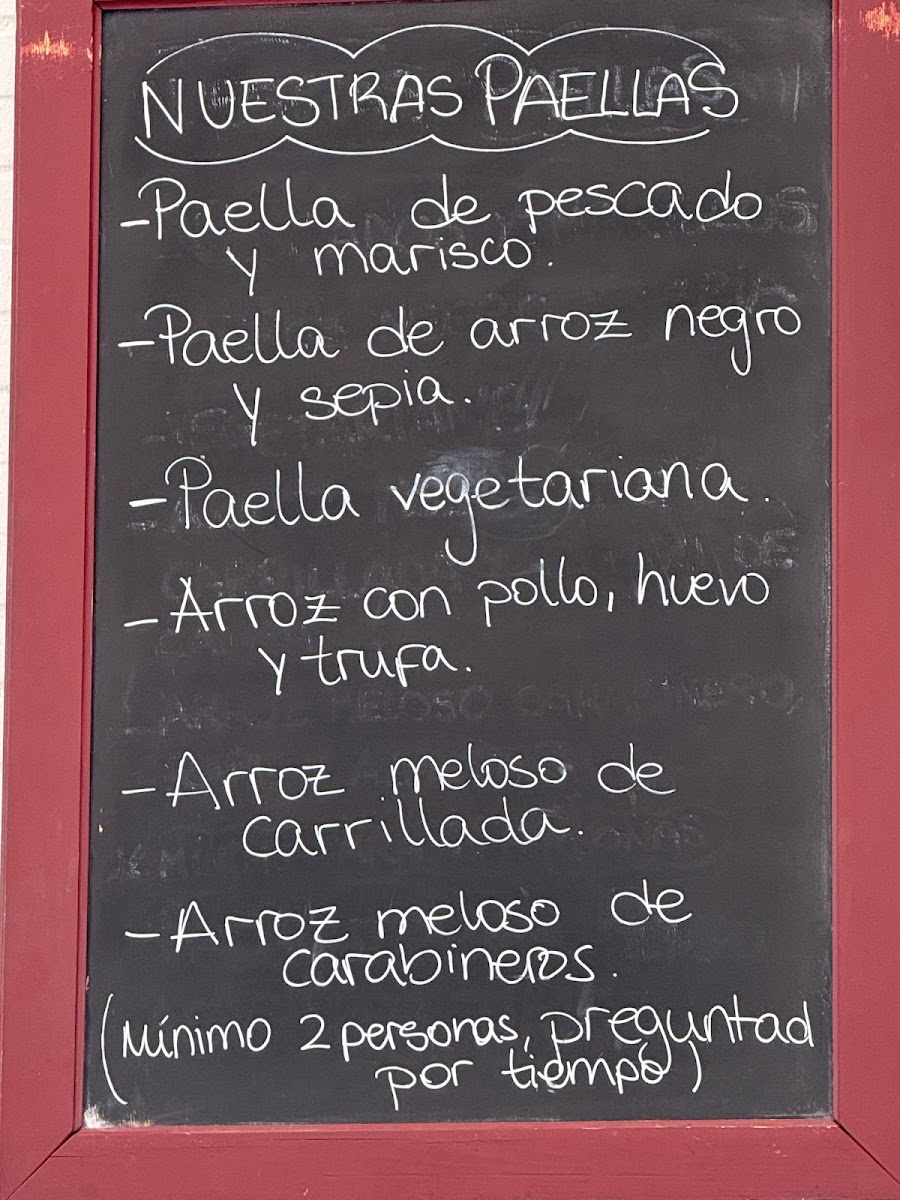 NUESTRAS PAELLAS
- Paella de pescado
y marisco.
- Paella de arroz negro
y sepia.
- Paella vegetariana.
- Arroz con pollo, huevo
y trufa.
- Arroz meloso de
carrillada.
- Arroz meloso de
carabineros.
(Mínimo 2 personas, preguntad
por tiempo)